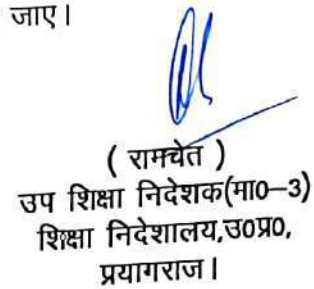 जाए।
( रामचेत )
उप शिक्षा निदेशक(मा0–3)
शिक्षा निदेशालय,उ0प्र0,
प्रयागराज।